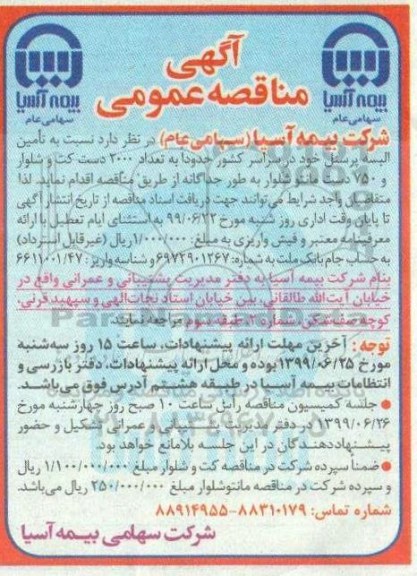 آگهی
مناقصه عمومی
بیمه آسیا
سهامی عام
بیمه آسیا
سهامی عام
شرکت بیمه آسیا (سهامی عام) در نظر دارد نسبت به تأمین
البسه پرسنل خود در سراسر کشور حدوداً به تعداد ۲۰۰۰ دست کت و شلوار
و ۷۵۰ دست مانتو شلوار به طور جداگانه از طریق مناقصه اقدام نماید. لذا
متقاضیان واجد شرایط می‌توانند جهت دریافت اسناد مناقصه از تاریخ انتشار آگهی
تا پایان وقت اداری روز شنبه مورخ ۹۹/۰۶/۲۲ به استثنای ایام تعطیل با ارائه
معرفینامه معتبر و فیش واریزی به مبلغ: ۱/۰۰۰/۰۰۰ ریال (غیرقابل استرداد)
به حساب جام بانک ملت به شماره: ۶۹۷۲۹۰۱۲۶۷ و شناسه واریز: ۶۶۱۱۰۰۱/۴۷
بنام شرکت بیمه آسیا به دفتر مدیریت پشتیبانی و عمرانی واقع در
خیابان آیت‌الله طالقانی، بین خیابان استاد نجات‌الهی و سپهبد قرنی،
کوچه صفاشکن، شماره ۲، طبقه سوم مراجعه نمایند.
توجه: آخرین مهلت ارائه پیشنهادات، ساعت ۱۵ روز سه‌شنبه
مورخ ۱۳۹۹/۰۶/۲۵ بوده و محل ارائه پیشنهادات، دفتر بازرسی و
انتظامات بیمه آسیا در طبقه هشتم آدرس فوق می‌باشد.
● جلسه کمیسیون مناقصه رأس ساعت ۱۰ صبح روز چهارشنبه مورخ
۱۳۹۹/۰۶/۲۶ در دفتر مدیریت پشتیبانی و عمرانی تشکیل و حضور
پیشنهاددهندگان در این جلسه بلامانع خواهد بود.
● ضمناً سپرده شرکت در مناقصه کت و شلوار مبلغ ۱/۱۰۰/۰۰۰/۰۰۰ ریال
و سپرده شرکت در مناقصه مانتوشلوار مبلغ ۲۵۰/۰۰۰/۰۰۰ ریال می‌باشد.
شماره تماس: ۸۸۳۱۰۱۷۹-۸۸۹۱۴۹۵۵
شرکت سهامی بیمه آسیا